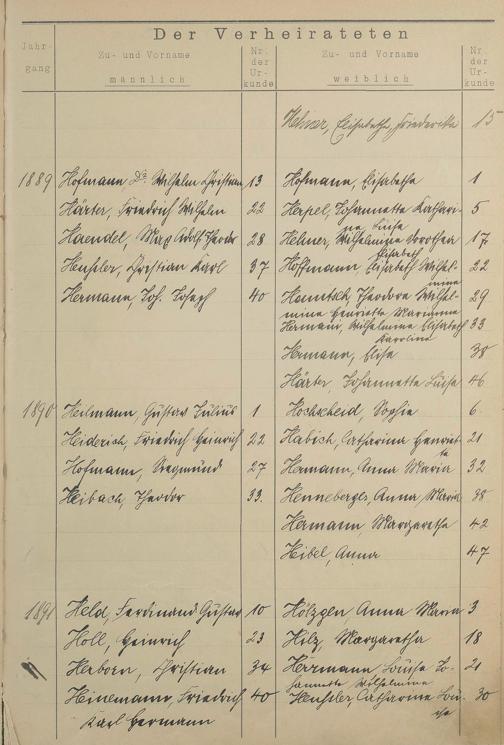 Der Verheirateten
Jahrgang
Zu- und Vorname männlich
Nr. der Urkunde
Zu- und Vorname weiblich
Nr. der Urkunde
Elisabetha, Friederike 15
1889 Hofmann Wilhelm Christian 13 Hofmann, Elisabetha 1
Härter, Friedrich Wilhelm 22 Herpel, Johannette Kathari-
ne Luise 5
Haendel, Max Adolf Theodor 28 Hehner, Wilhelmine Dorothea 17
Elisabeth
Heuhler, Christian Karl 37 Hoffmann, Elisabeth Wilhel-
mine 22
Hermann, Joh. Joseph 40 Theodora Wilhel-
mine Henriette Marianna 29
Hermann, Wilhelmine Elisabeth
Karoline 33
Hermann, Elisa 38
Härter, Johannette Luise 46
1890 Heilmann, Gustav Julius 1 Hochscheid, Sophie 6
Heiderich, Friedrich Heinrich 22 Habich, Catharina Henriet-
te 21
Hofmann, Siegmund 27 Hermann, Anna Maria 32
Heibach, Theodor 33. Henneberger, Anna Maria 38
Hermann, Margaretha 42
Heibel, Anna 47
1891 Held, Ferdinand Gustav 10 Hölzgen, Anna Maria 3
Holl, Heinrich 23 Hilz, Margaretha 18
Herborn, Christian 34 Herrmann Louise Jo-
hannette Wilhelmine 21
Heinemann, Friedrich
Karl Hermann 40 Catharine Lou-
ise 30